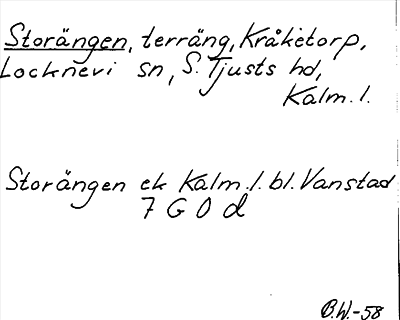 Storängen, terräng, Kråketorp,
Locknevi sn, S. Tjusts hd,
Kalm. l.
Storängen ek Kalm. l. bl. Vanstad
7 G 0 d
B.W.-58